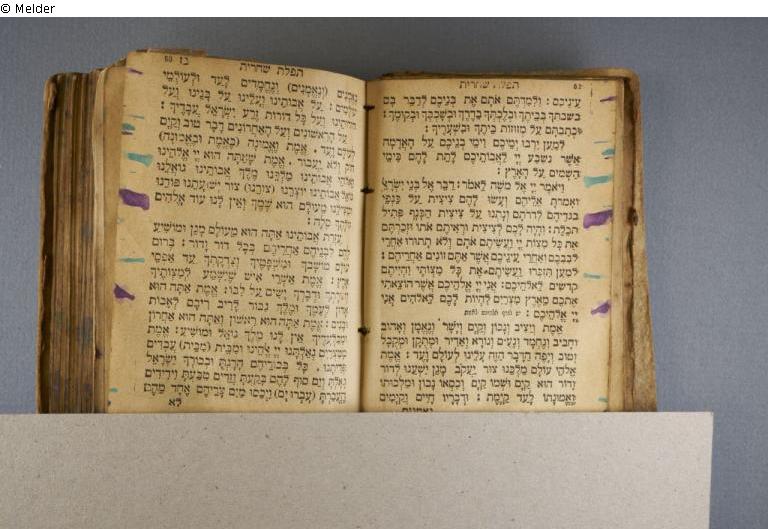 © Melder
תפלת שחרית
עיניכם : ולמדתם אתם את בניכם לדבר בם
בשבתך בביתך ובלכתך בדרך ובשכבך ובקומך :
וכתבתם על מזוזות ביתך ובשעריך :
למען ירבו ימיכם וימי בניכם על האדמה
אשר נשבע יי לאבותיכם לתת להם כימי
השמים על הארץ :
ויאמר יי אל משה לאמר : דבר אל בני ישראל
ואמרת אליהם ועשו להם ציצית על כנפי
בגדיהם לדרתם ונתנו על ציצית הכנף פתיל
תכלת : והיה לכם לציצית וראיתם אתו וזכרתם
את כל מצות יי ועשיתם אתם ולא תתורו אחרי
לבבכם ואחרי עיניכם אשר אתם זונים אחריהם :
למען תזכרו ועשיתם את כל מצותי והייתם
קדשים לאלהיכם : אני יי אלהיכם אשר הוצאתי
אתכם מארץ מצרים להיות לכם לאלהים אני
יי אלהיכם :
אמת ויציב ונכון וקים וישר ונאמן ואהוב
וחביב ונחמד ונעים ונורא ואדיר ומתקן ומקבל
וטוב ויפה הדבר הזה עלינו לעולם ועד : אמת
אלהי עולם מלכנו צור יעקב מגן ישענו לדור
ודור הוא קים ושמו קים וכסאו נכון ומלכותו
ואמונתו לעד קימת : ודבריו חיים וקימים
נאמנים
תפלת שחרית
נאמנים (ונאמנים) ונחמדים לעד ולעולמי
עולמים : על אבותינו ועלינו על בנינו ועל
דורותינו ועל כל דורות זרע ישראל עבדיך :
על הראשונים ועל האחרונים דבר טוב וקים
לעולם ועד. אמת ואמונה (באמת ובאמונה)
חק ולא יעבור. אמת שאתה הוא יי אלהינו
ואלהי אבותינו מלכנו מלך אבותינו גואלנו
גואל אבותינו יוצרנו (צורנו) צור ישועתנו פודנו
ומצילנו מעולם הוא שמך ואין לנו עוד אלהים
זולתך סלה :
עזרת אבותינו אתה הוא מעולם מגן ומושיע
להם ולבניהם אחריהם בכל דור ודור : ברום
עולם מושבך ומשפטיך וצדקתך עד אפסי
ארץ : אמת אשרי איש שישמע למצותיך
ותורתך ודברך ישים על לבו : אמת אתה הוא
אדון לעמך ומלך גבור לריב ריבם לאבות
ובנים : אמת אתה הוא ראשון ואתה הוא אחרון
ומבלעדיך אין לנו מלך גואל ומושיע : אמת
ממצרים גאלתנו יי אלהינו ומבית (מבית) עבדים
פדיתנו. כל בכוריהם הרגת ובכורך ישראל
גאלת וים סוף להם בקעת וזדים טבעת וידידים
העברת (עברו ים) ויכסו מים צריהם אחד מהם
לא